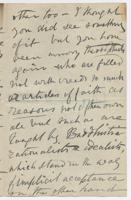 other too. I thought
you did see something
of it but you have
been among those
again who are filled
not with creeds so much
as articles of faith as
reasons not often own
ed but such as are
taught by Buddhistic
rationalists & idealists,
which stand in the way
of implicit acceptance
on the other hand